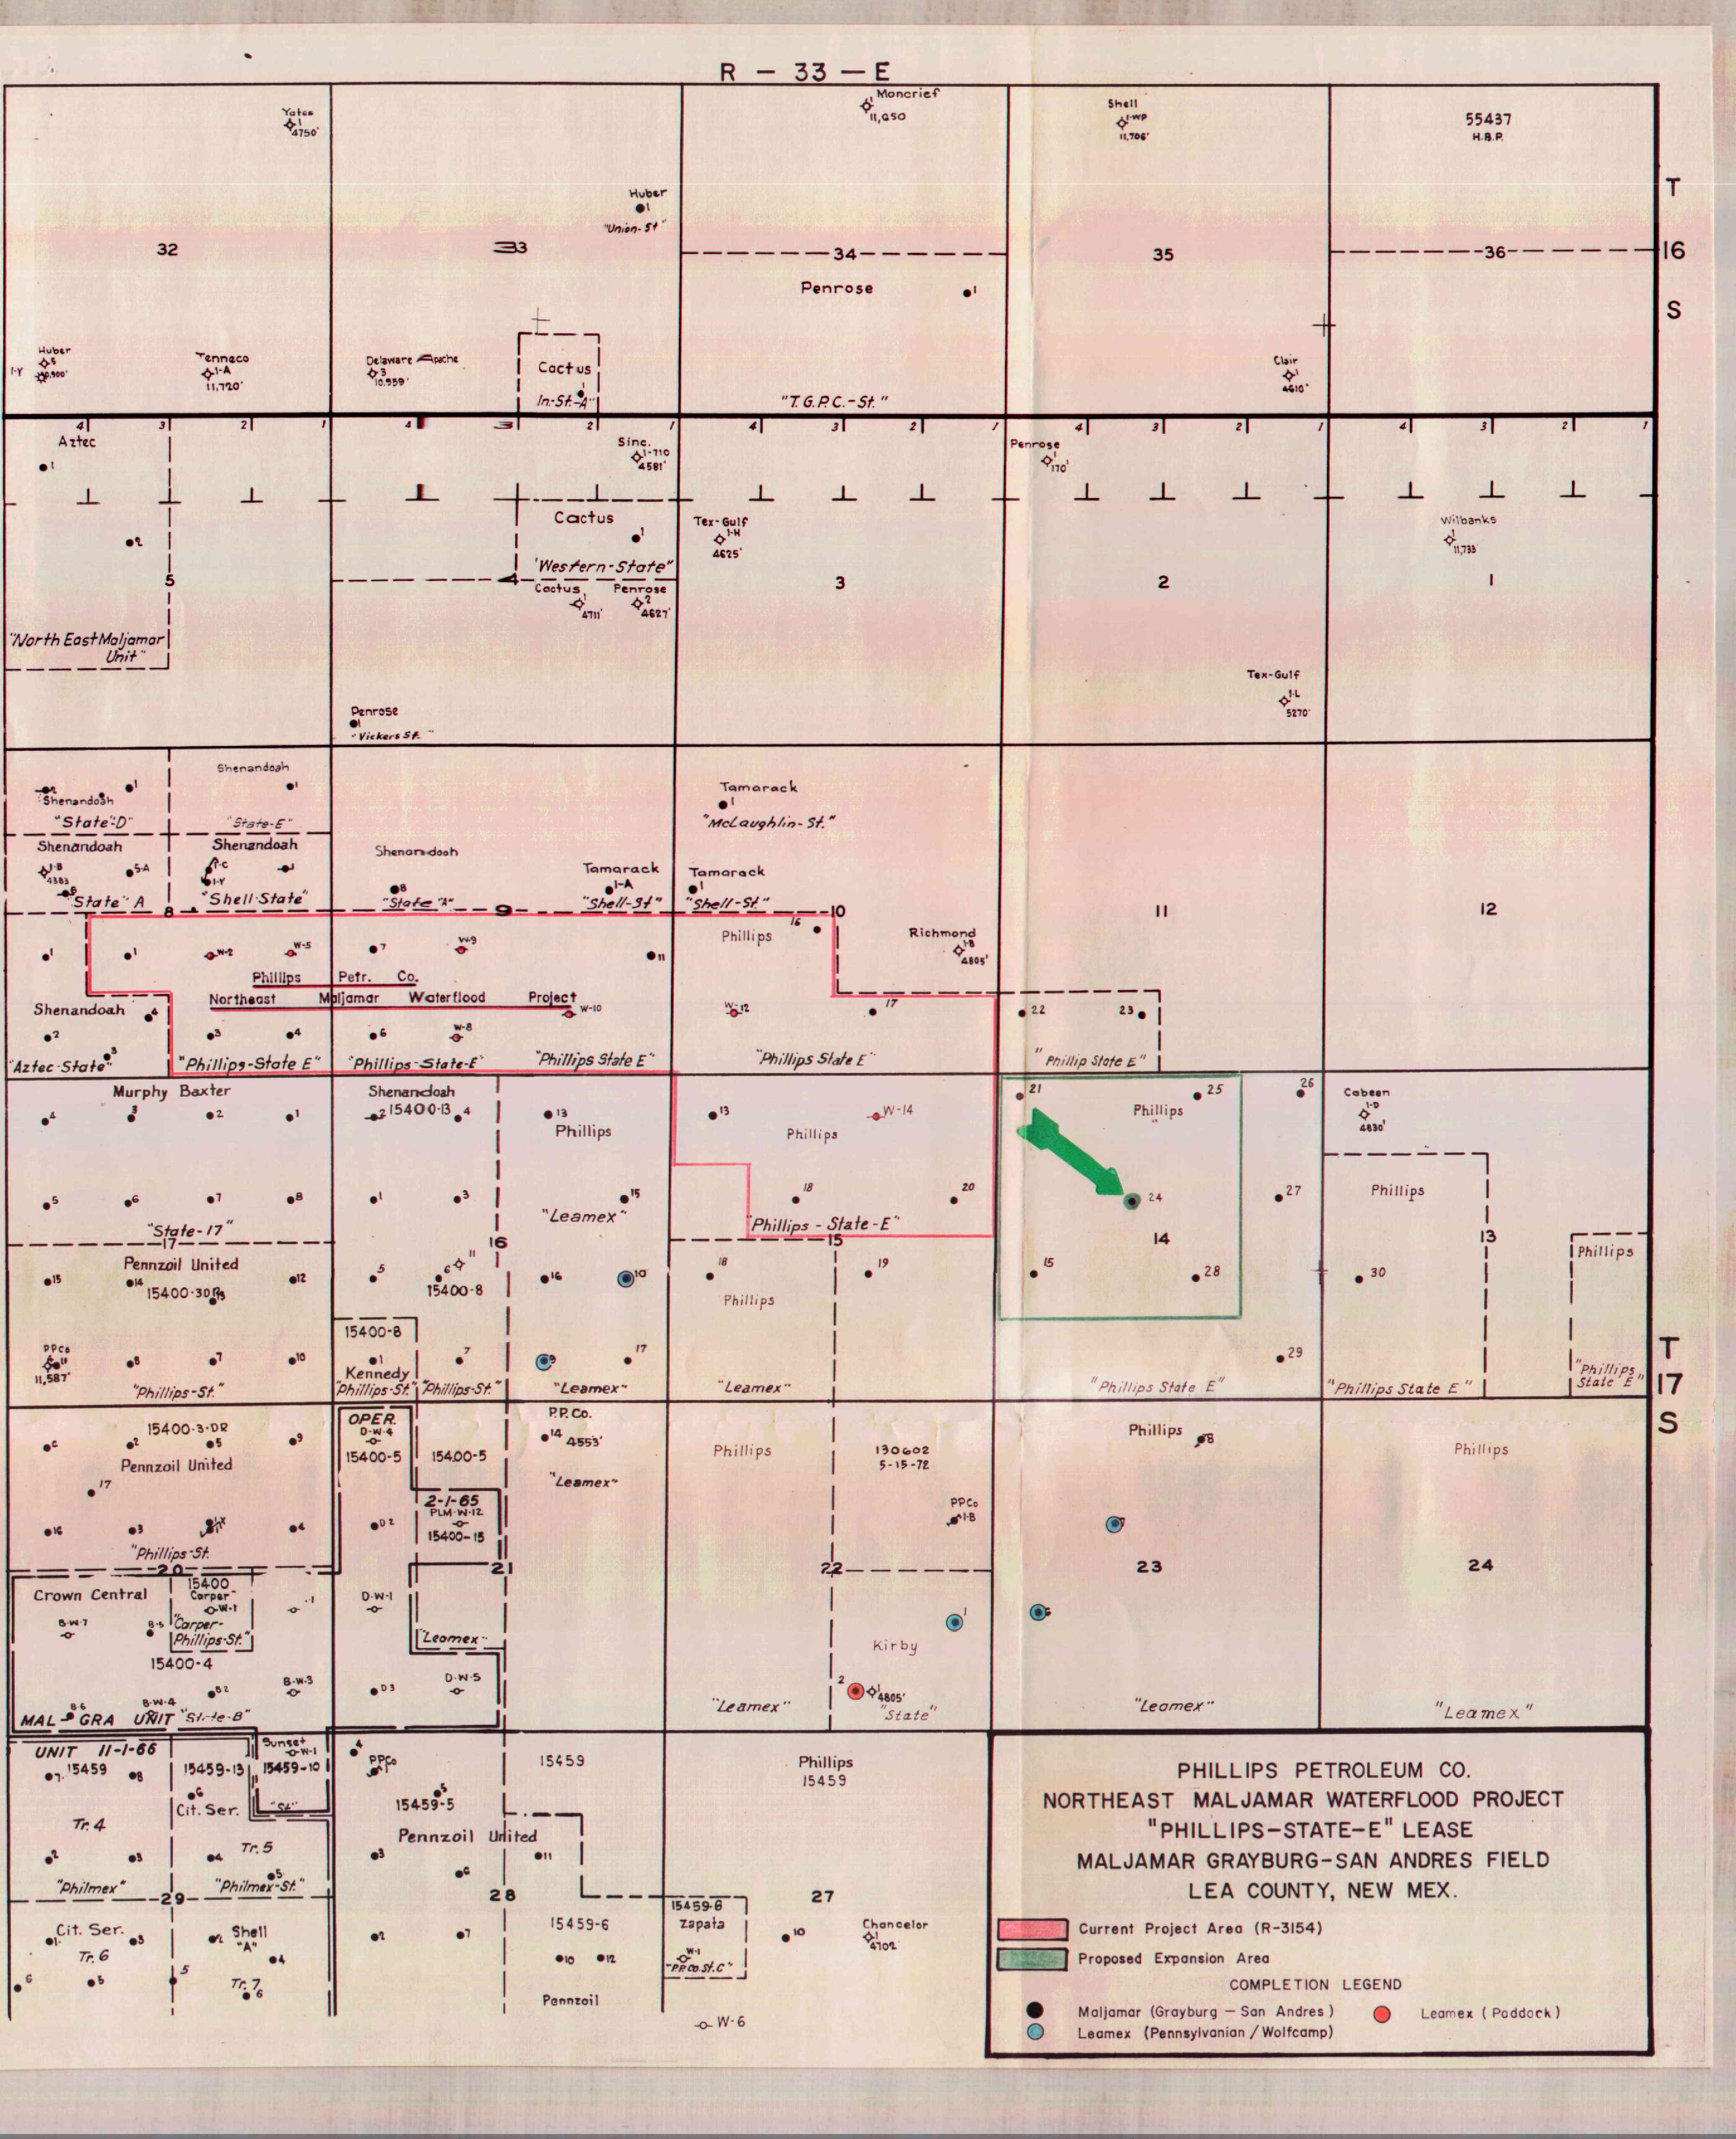 R - 33 - E
Yates
1
4750'
Moncrief
11,050
Shell
1-WP
11,706'
55437
H.B.P.
T
16
S
Huber
1
"Union-St"
32
33
34
35
36
Penrose
1
Huber
Tenneco
1-A
11,720'
Delaware Apache
3
10,559'
Cactus
1
In.-St.-A"
"T.G.P.C.-St."
Clair
1
4610'
4 3 2 1 4 2 1 4 3 2 1 4 3 2 1 4 3 2 1
Aztec
1
Sinc.
1-710
4581'
Penrose
170'
2
Cactus
1
Tex-Gulf
1-H
4625'
Wilbanks
11,733'
"Western-State"
5
4
3
2
1
Cactus
4711'
Penrose
2
4627'
"North East Maljamar
Unit"
Tex-Gulf
1-L
5270'
Penrose
1
"Vickers St."
Shenandoah
1
1
Shenandoah
"State-D"
"State-E"
Tamarack
1
"McLaughlin-St."
Shenandoah
Shenandoah
Shenandoah
1-B
4383
5-A
Tamarack
1-A
Tamarack
1
"State" A
"Shell-State"
"State "A"
"Shell-St"
"Shell-St."
8
9
10
11
12
1
1
W-2
W-5
7
W-9
11
Phillips
16
Richmond
1-B
4805'
Phillips Petr. Co.
Northeast Maljamar Waterflood Project
Shenandoah
4
2
3
3
4
6
W-8
W-10
W-12
17
22
23
"Aztec-State"
"Phillips-State E"
"Phillips-State-E"
"Phillips State E"
"Phillips State E"
"Phillip State E"
Murphy Baxter
4
3
2
1
Shenandoah
2 15400-13 4
13
Phillips
13
Phillips
W-14
21
25
Phillips
26
Cabeen
1-D
4830'
5
6
7
8
1
3
15
"Leamex"
18
20
24
27
Phillips
"State-17"
"Phillips-State-E"
17
16
15
14
13
Pennzoil United
15
14
15400-30
12
5
6
11
15400-8
16
10
18
19
Phillips
15
28
30
Phillips
15400-8
PPCo
11,587'
8
7
10
1
Kennedy
7
9
17
29
"Phillips-St."
"Phillips-St."
"Phillips-St."
"Leamex"
"Leamex"
"Phillips State E"
"Phillips State E"
"Phillips
State E"
T
17
S
15400-3-DR
2
5
9
Pennzoil United
17
OPER.
D-W-4
15400-5
15400-5
P.P.Co.
14 4553'
"Leamex"
Phillips
130602
5-15-72
Phillips
8
Phillips
2-1-65
PLM-W-12
15400-15
16
3
4
D2
PPCo
1-B
"Phillips-St.
20
21
22
23
24
Crown Central
15400
Carper
W-1
1
D-W-1
B-W-7
B-5
"Carper-
Phillips-St."
15400-4
"Leamex"
1
Kirby
B-W-3
B2
B-6
B-W-4
D3
D-W-5
2
4805'
MAL-GRA UNIT "State-B"
"Leamex"
"State"
"Leamex"
"Leamex"
UNIT 11-1-66
Sunset
W-1
4
PPCo
7 15459 8
15459-13
15459-10
15459
Phillips
15459
6
Cit. Ser.
15459-5
Tr. 4
Tr. 5
Pennzoil United
2
3
4
3
6
11
5
"Philmex"
"Philmex-St."
29
28
27
Cit. Ser.
1
3
Tr. 6
2 Shell
"A"
4
Tr. 7
6
5
5
6
2
7
15459-6
10
12
Pennzoil
15459-8
Zapata
W-1
"PPCo St. C"
10
Chancelor
1
4702'
W-6
PHILLIPS PETROLEUM CO.
NORTHEAST MALJAMAR WATERFLOOD PROJECT
"PHILLIPS-STATE-E" LEASE
MALJAMAR GRAYBURG-SAN ANDRES FIELD
LEA COUNTY, NEW MEX.
Current Project Area (R-3154)
Proposed Expansion Area
COMPLETION LEGEND
Maljamar (Grayburg - San Andres)
Leamex (Paddock)
Leamex (Pennsylvanian / Wolfcamp)